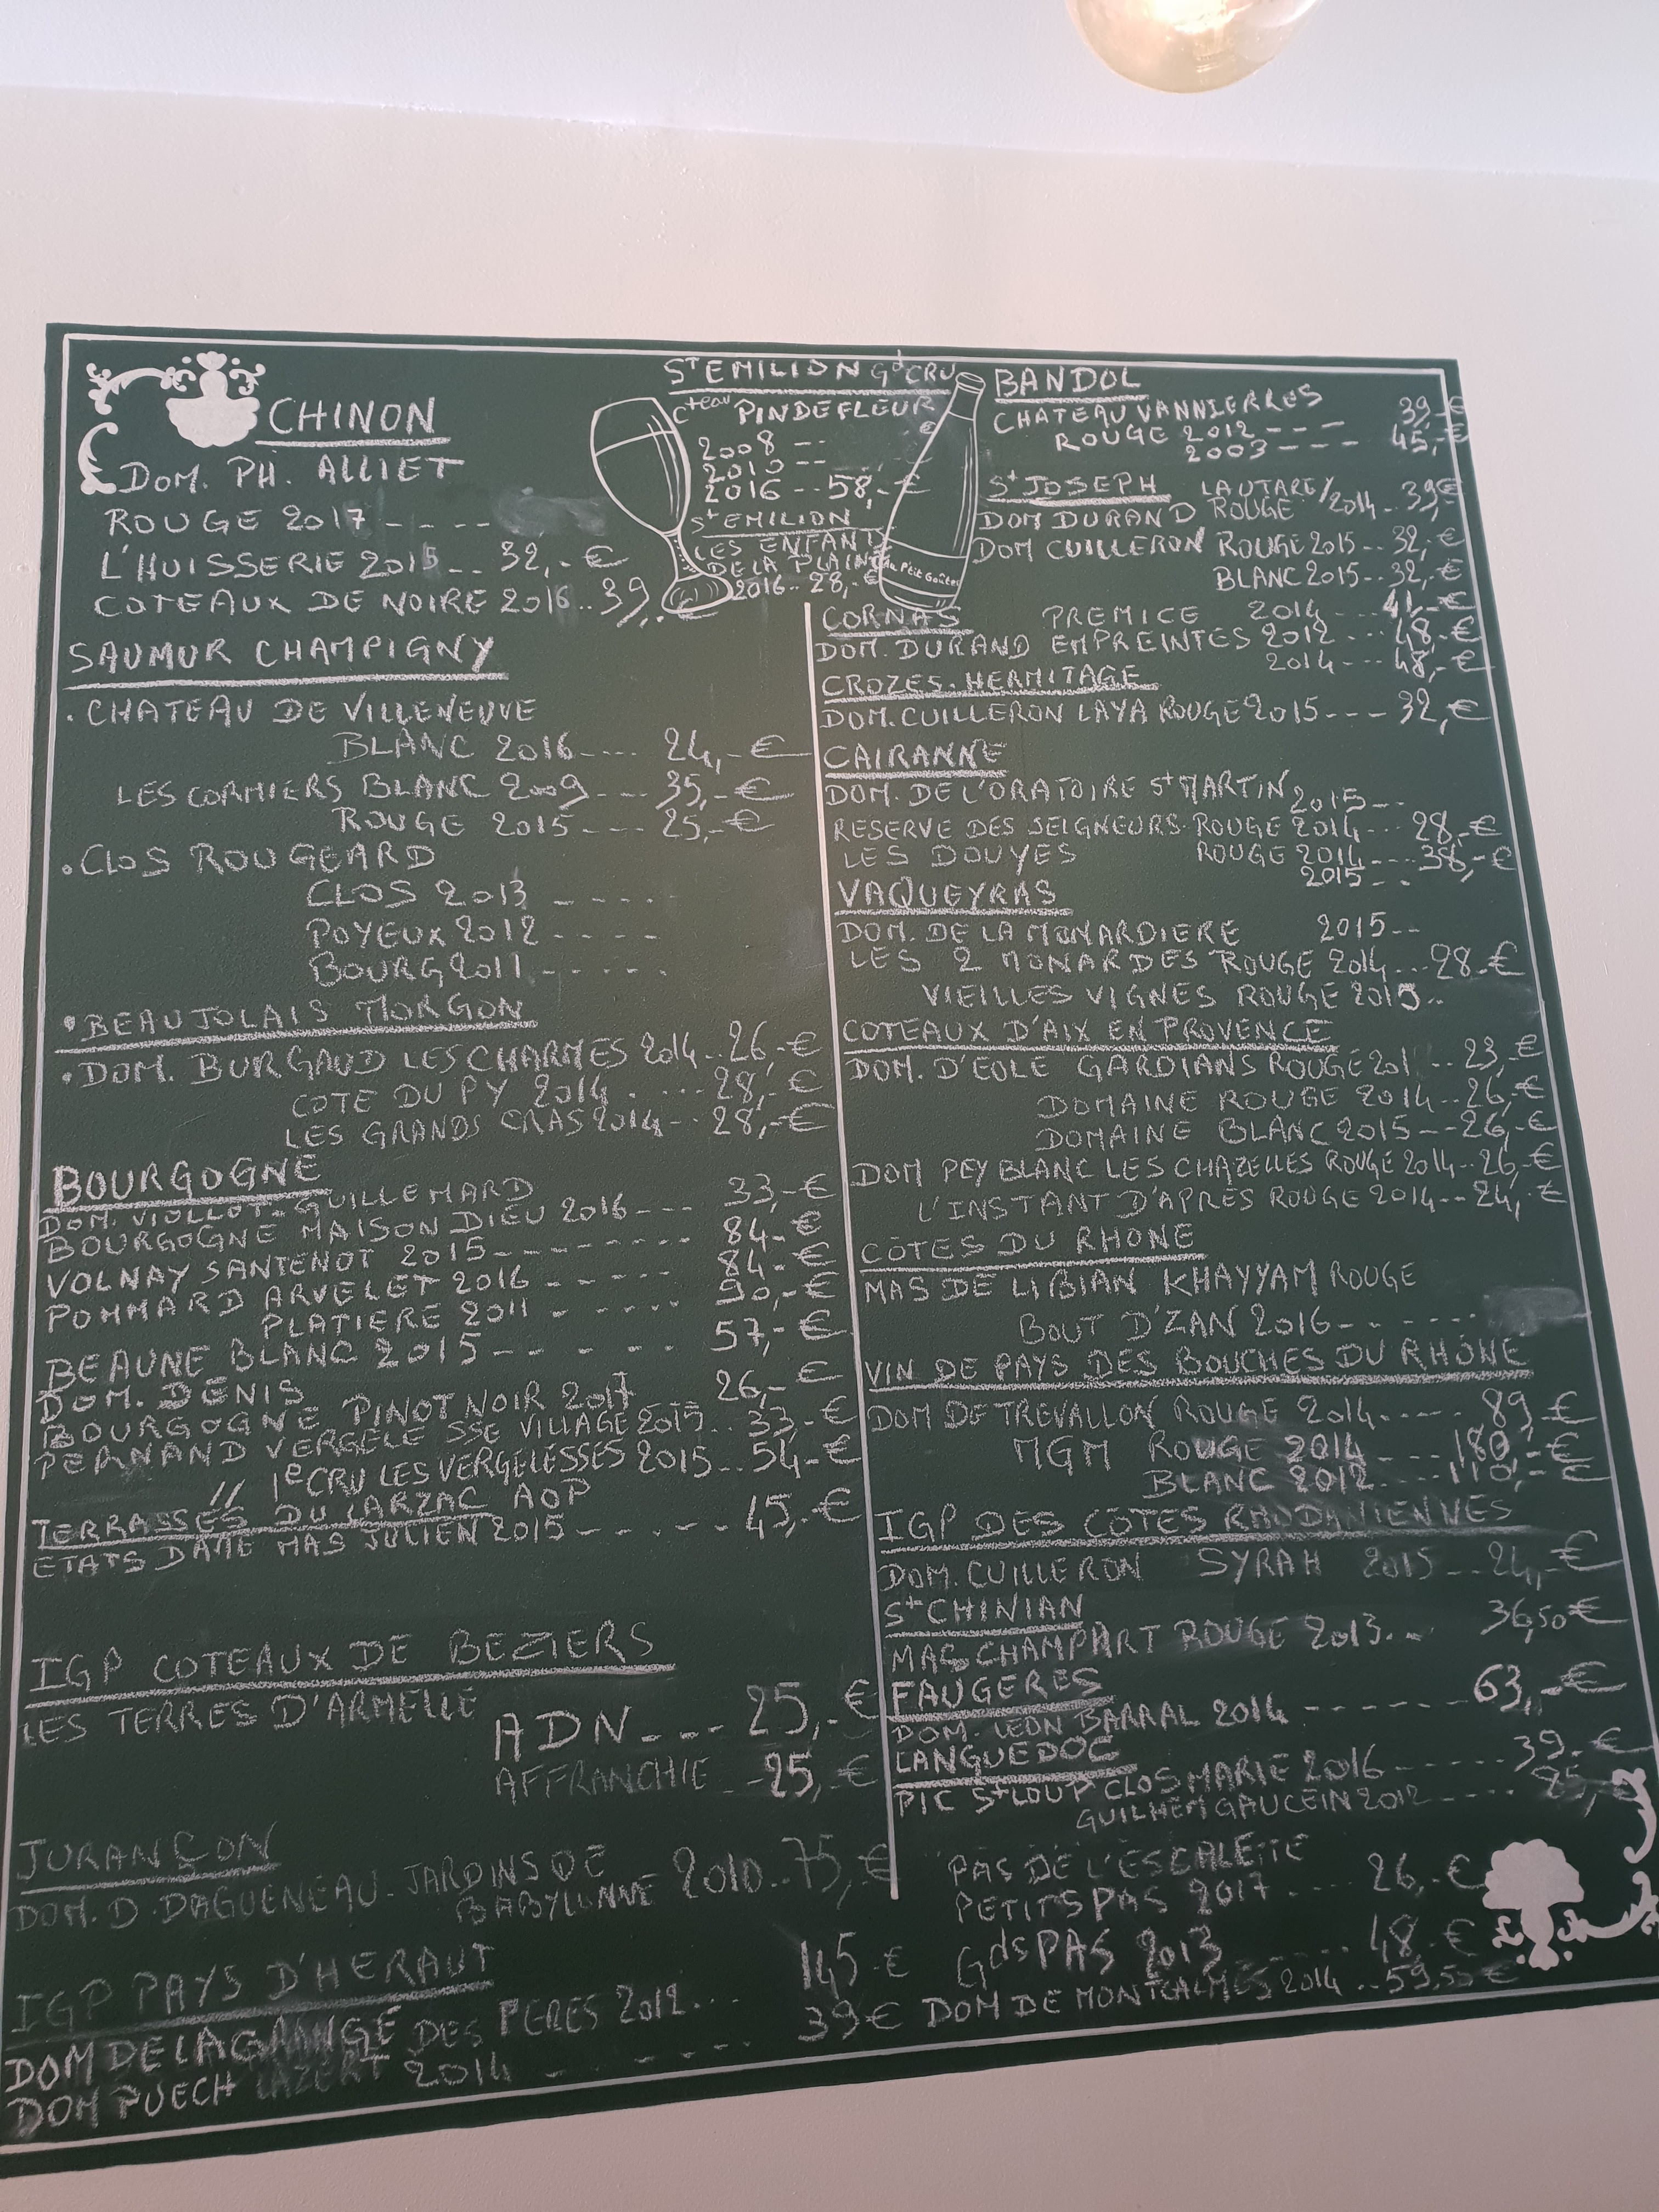 CHINON
DOM. PH. ALLIET
ROUGE 2017 - - - -
L'HUISSERIE 2015 -- 32,-€
COTEAUX DE NOIRE 2016..39,-€
SAUMUR CHAMPIGNY
. CHATEAU DE VILLENEUVE
BLANC 2016---- 24,-€
LES CORMIERS BLANC 2009--- 35,-€
ROUGE 2015---- 25,-€
. CLOS ROUGEARD
CLOS 2013 - - - - -
POYEUX 2012 - - - - -
BOURG 2011 - - - - -
• BEAUJOLAIS MORGON
• DOM. BURGAUD LES CHARMES 2014..26,-€
COTE DU PY 2014. ---28,-€
LES GRANDS CRAS 2014--28,-€
BOURGOGNE
DOM. VIOLLOT-GUILLEMARD
BOURGOGNE MAISON DIEU 2016--- 33,-€
VOLNAY SANTENOT 2015--------- 84,-€
POMMARD ARVELET 2016 ------ 84,-€
PLATIERE 2011 - ----- 90,-€
BEAUNE BLANC 2015-- - - - - 57,-€
DOM. DENIS
BOURGOGNE PINOT NOIR 2017 26,-€
PERNAND VERGELESSE VILLAGE 2015.. 33,-€
// 1e CRU LES VERGELESSES 2015..54,-€
TERRASSES DU LARZAC AOP
ETATS DAME MAS JULIEN 2015- - - - -- 45,-€
IGP COTEAUX DE BEZIERS
LES TERRES D'ARMELLE
ADN---- 25,-€
AFFRANCHIE --25,-€
JURANÇON
DOM. D. DAGUENEAU-JARDINS DE
BABYLONNE 2010..75,-€
IGP PAYS D'HERAUT
DOM DE LA GRANGE DES PERES 2012... 145-€
DOM PUECH LAZERT 2014 - - - - - - 39€
St EMILION Gd CRU
Cteau PINDEFLEUR
€
2008 --
2010 --
2016 --58,-€
St EMILION
LES ENFANT
DE LA PLAINE
2016--28,-€
Au P'tit Goûter
BANDOL
CHATEAU VANNIERRES
ROUGE 2012 - - - 39,-€
2003 --- --- 45,-€
St JOSEPH LAUTARET
DOM DURAND ROUGE 2014..39,€
DOM CUILLERON ROUGE 2015..32,-€
BLANC 2015..32,-€
CORNAS PREMICE 2014---41,-€
DOM. DURAND EMPREINTES 2012...48,-€
2014---48,-€
CROZES-HERMITAGE
DOM. CUILLERON LAYA ROUGE 2015---32,-€
CAIRANNE
DOM. DE L'ORATOIRE St MARTIN 2015--
RESERVE DES SEIGNEURS ROUGE 2014---28,-€
LES DOUYES ROUGE 2014---38,-€
2015--
VAQUEYRAS
DOM. DE LA MONARDIERE 2015--
LES 2 MONARDES ROUGE 2014...28-€
VIEILLES VIGNES ROUGE 2015..
COTEAUX D'AIX EN PROVENCE
DOM. D'EOLE GARDIANS ROUGE 201 -- 23,-€
DOMAINE ROUGE 2014--26,-€
DOMAINE BLANC 2015--26,-€
DOM PEY BLANC LES CHAZELLES ROUGE 2014..26,-€
L'INSTANT D'APRES ROUGE 2014--24,-€
CÔTES DU RHONE
MAS DE LIBIAN KHAYYAM ROUGE
BOUT D'ZAN 2016-- - - - -
VIN DE PAYS DES BOUCHES DU RHÔNE
DOM DE TREVALLON ROUGE 2014----- 89-€
MGM ROUGE 2014 ----180,-€
BLANC 2012. ----110,-€
IGP DES COTES RHODANIENNES
DOM. CUILLERON SYRAH 2015--24,-€
St CHINIAN
MAS CHAMPART ROUGE 2013... 36,50€
FAUGERES
DOM. LEON BARRAL 2014 ------63,-€
LANGUEDOC
PIC St LOUP CLOS MARIE 2016 -----39-€
GUILHEM GAUCEIN 2012----
PAS DE L'ESCALETTE
PETITS PAS 2017 ---- 26,-€
Gds PAS 2013 ----- 48,-€
DOM DE MONTCALMES 2014 ..59,50€